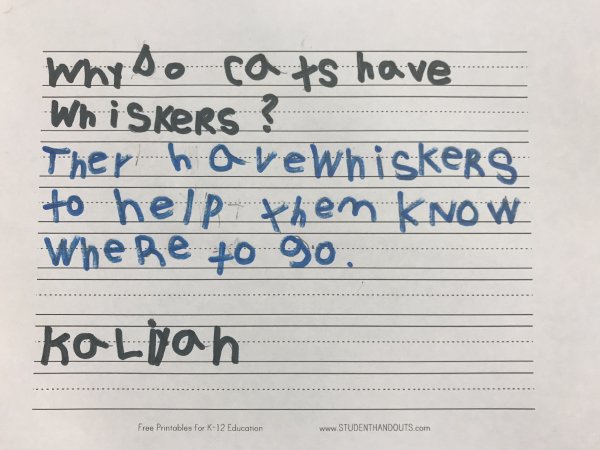 Why Do cats have
WhiSKERS?
Ther haveWhiskeRS
to help them KNOW
WheRe to go.
KaLiyah
Free Printables for K-12 Education www.STUDENTHANDOUTS.com